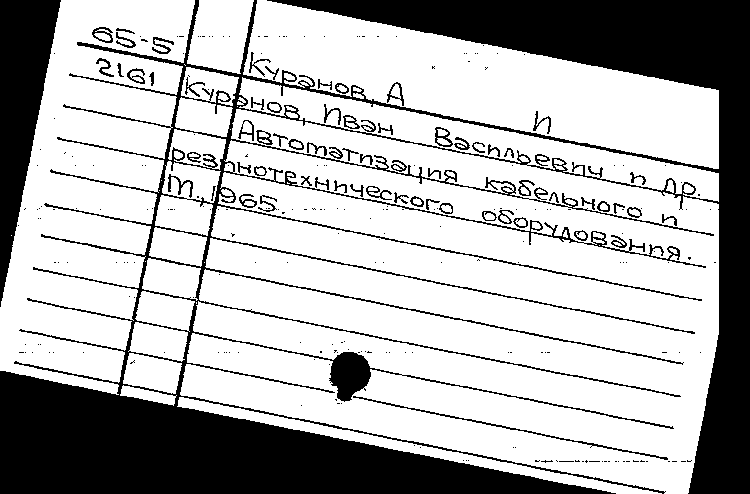 65-5
2161
Куранов, А И
Куранов, Иван Васильевич и др.
Автоматизация кабельного и
резинотехнического оборудования.
М., 1965.